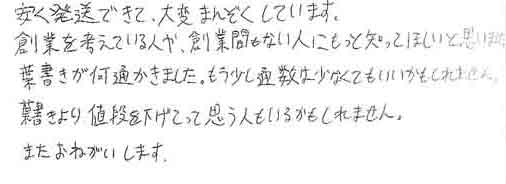 安く発送できて、大変まんぞくしています。
創業を考えている人や、創業間もない人にもっと知ってほしいと思いま
葉書きが何通かきました。もう少し通数は少なくてもいいかもしれません。
葉書きより値段を下げてって思う人もいるかもしれません。
またおねがいします。